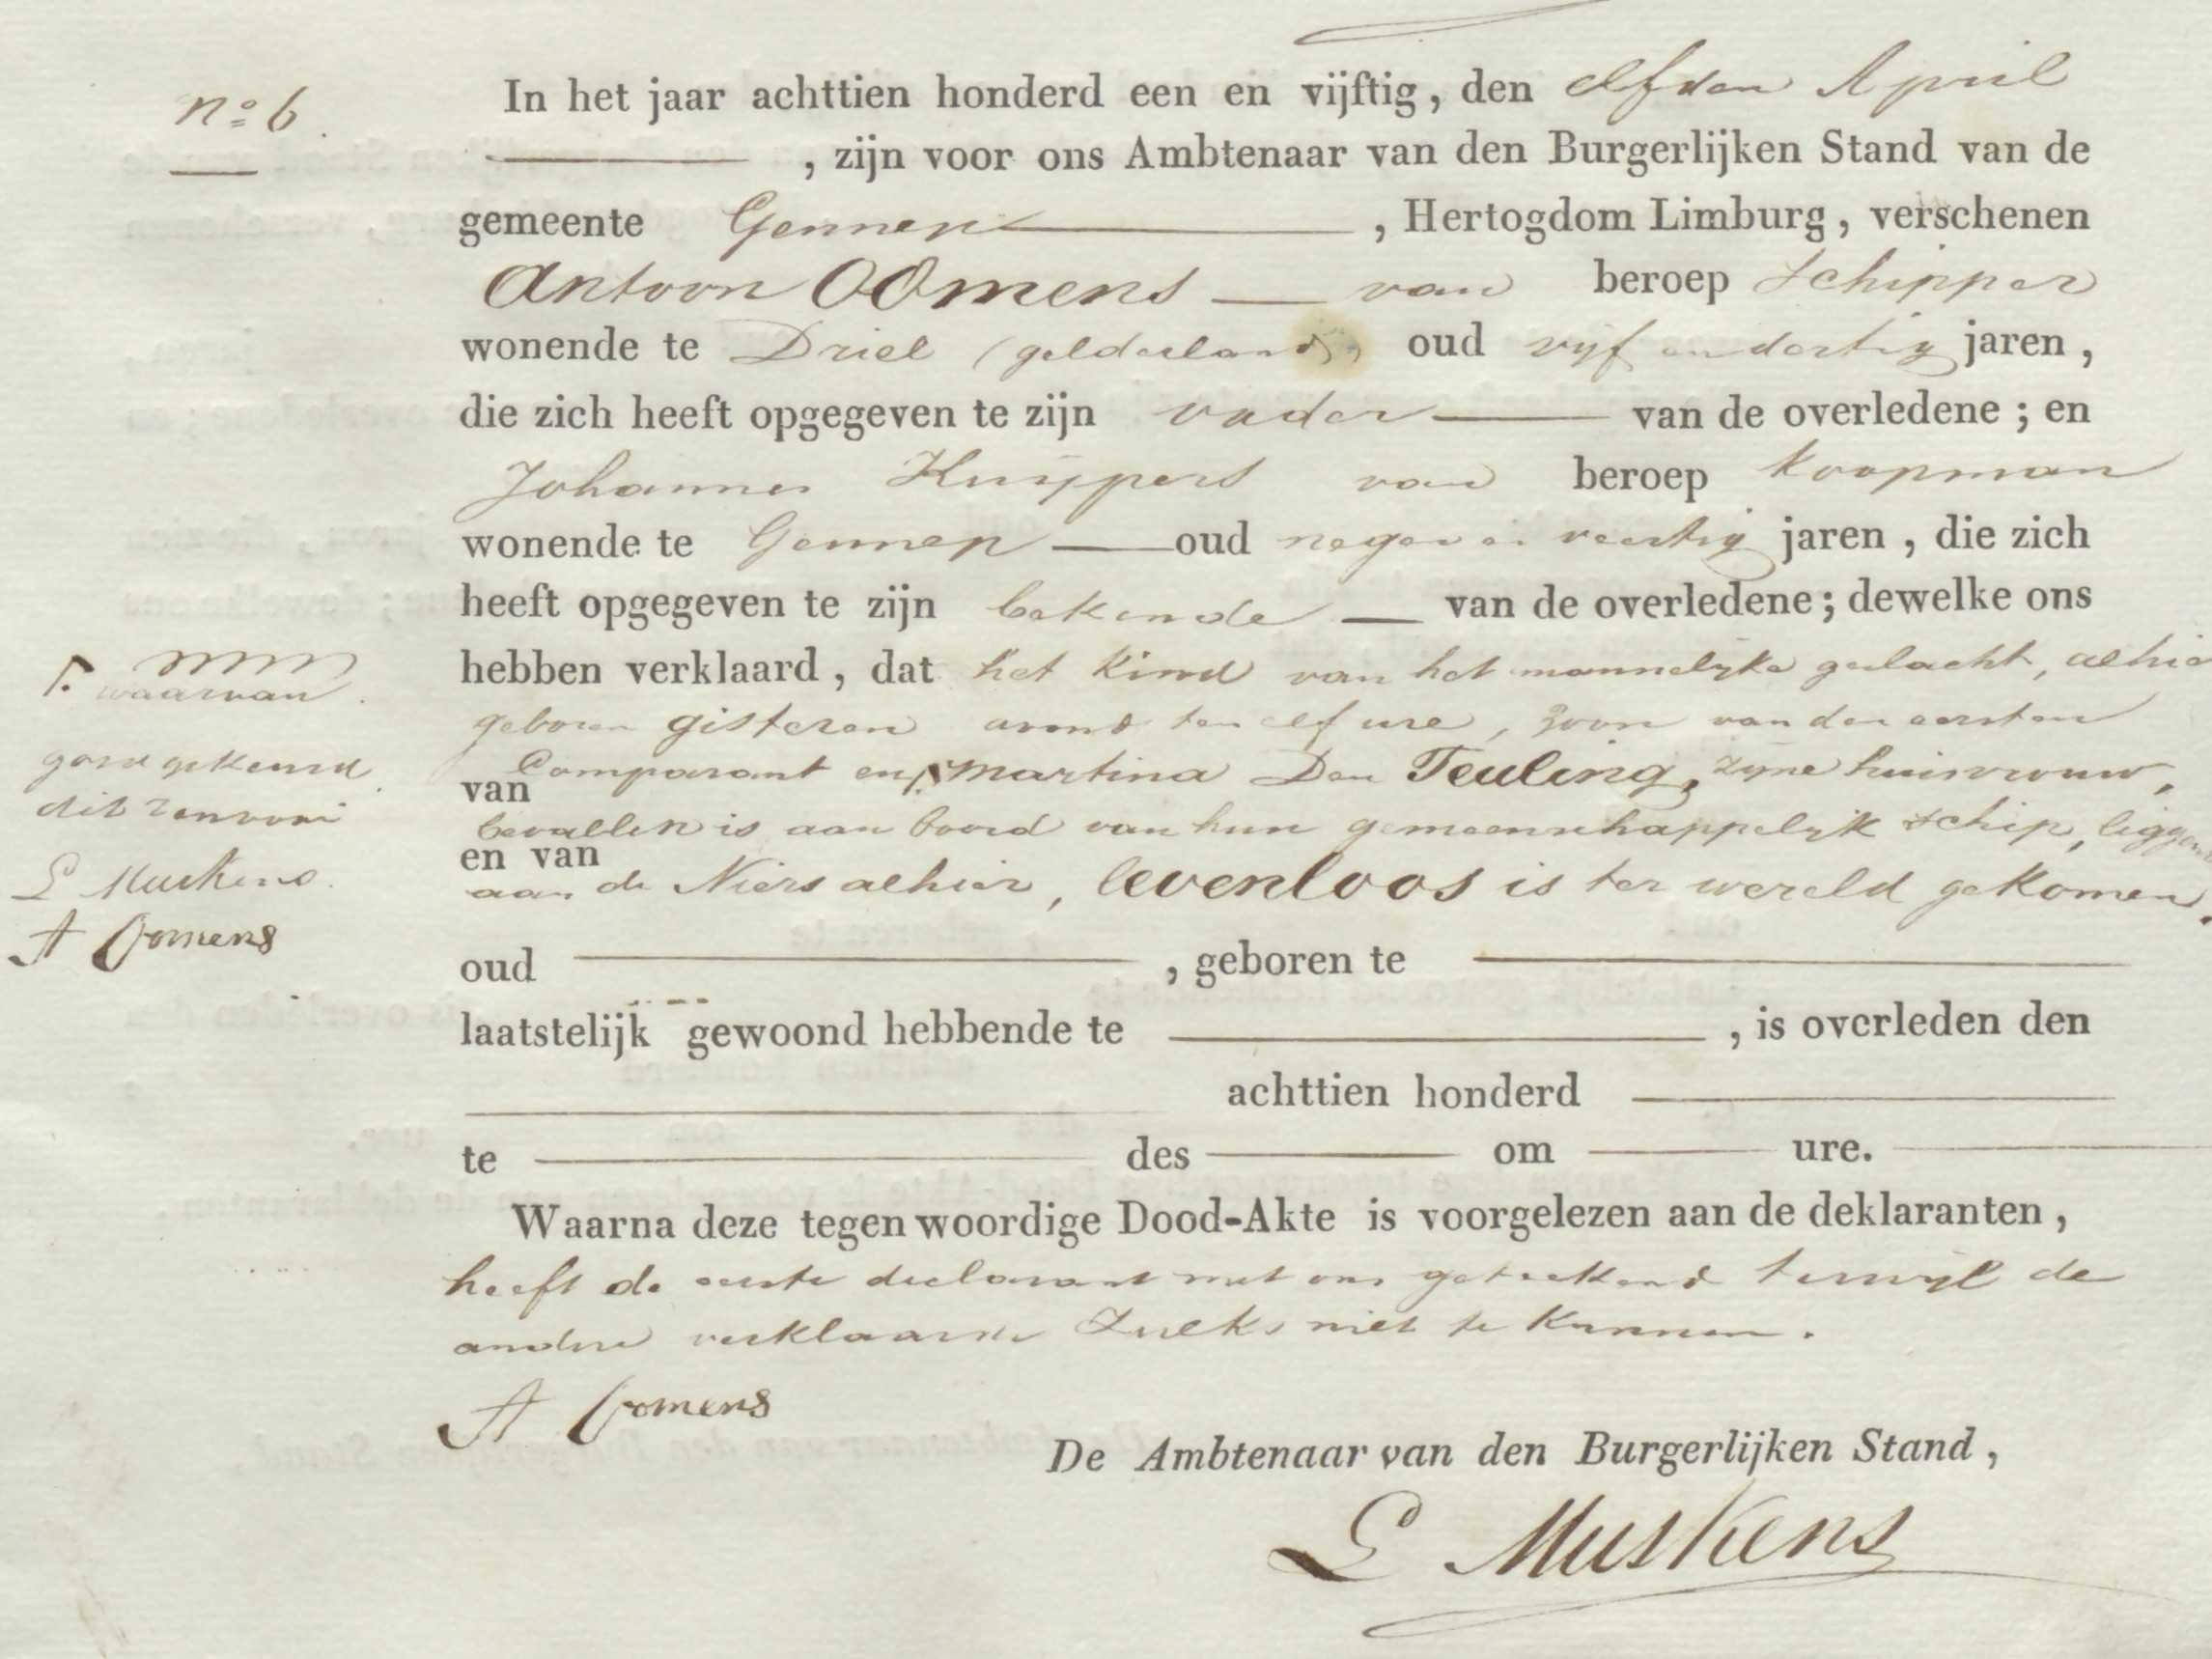 nº 6.
In het jaar achttien honderd een en vijftig, den elfden April
, zijn voor ons Ambtenaar van den Burgerlijken Stand van de
gemeente Gennep , Hertogdom Limburg, verschenen
Antoon Oomens van beroep Schipper
wonende te Driel (gelderland), oud vijf en dertig jaren,
die zich heeft opgegeven te zijn vader van de overledene; en
Johannes Kuijpers van beroep koopman
wonende te Gennep oud negen en veertig jaren, die zich
heeft opgegeven te zijn bekende van de overledene; dewelke ons
hebben verklaard, dat het kind van het mannelyke geslacht, alhier
geboren gisteren avond ten elf ure, zoon van den eersten
Comparant en Martina Den Teuling, zyne huisvrouw,
van
bevallen is aan boord van hun gemeenschappelyk schip, liggende
en van
aan de Niers alhier, levenloos is ter wereld gekomen.
oud , geboren te
laatstelijk gewoond hebbende te , is overleden den
achttien honderd
te des om ure.
Waarna deze tegenwoordige Dood-Akte is voorgelezen aan de deklaranten,
heeft de eerste declarant met ons geteekend terwyl de
andere verklaarde Zulks niet te Kunnen.
A Oomens
De Ambtenaar van den Burgerlijken Stand,
L Muskens
waarvan
goed gekeurd
dit renvooi
L Muskens
A Oomens